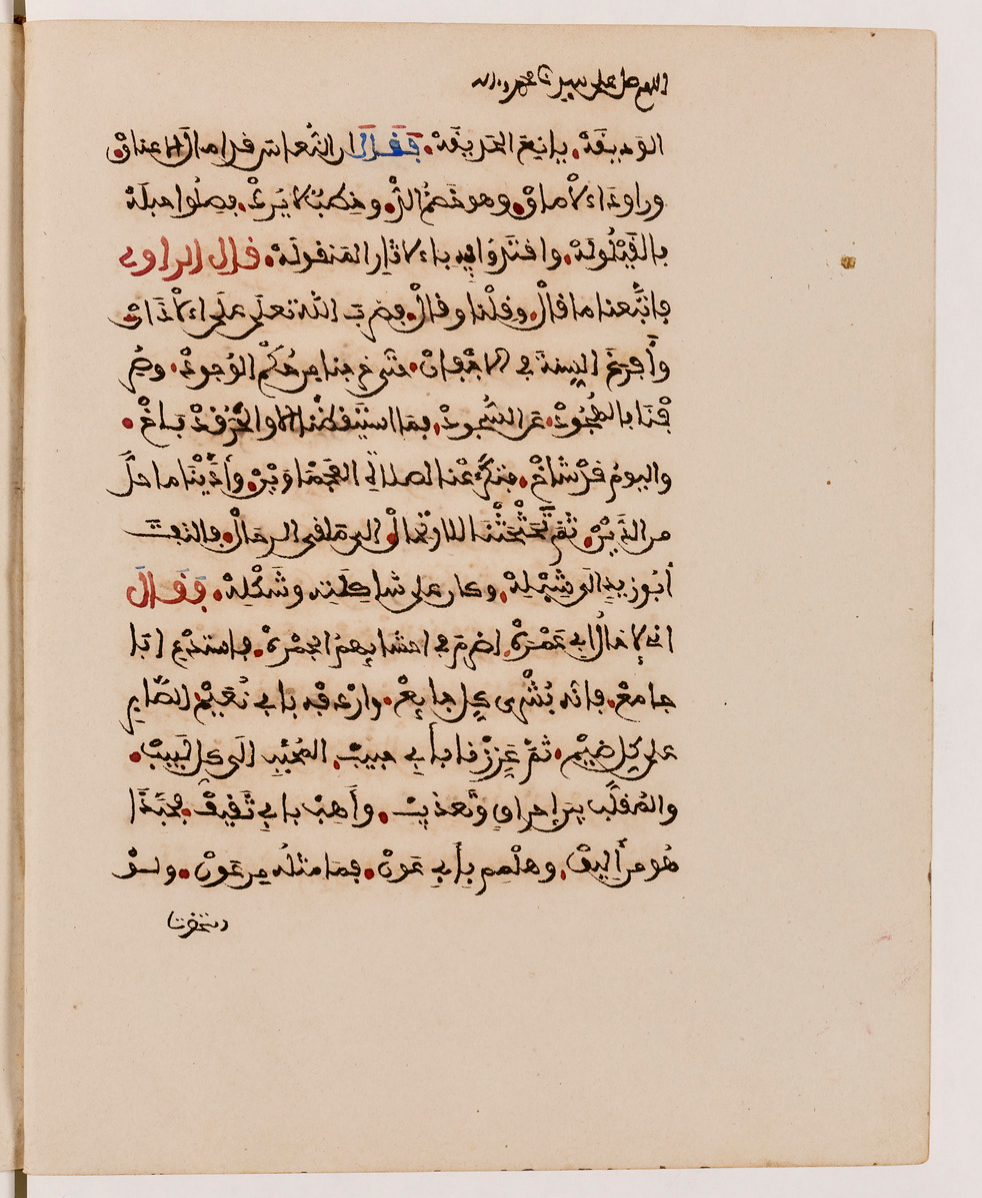 اللهم صل على سيدنا محمد وءاله
الوديقة. يانع الحديقة. فقال ان النعاس قد امال الاعناق
وراود الاماق. وهو خصم الد. وخطب لا يرد. فصلوا حبله
بالقيلولة. واقتدوا فيه بالاثار المنقولة. قال الراوي
فاتبعنا ما قال. وقلنا وقال. فضرب الله تعلى على الاذان
وأفرغ السنة في الاجفان. حتى خرجنا من حكم الوجود. وصر
فنا بالهجود. عن السجود. فما استيقظنا الا والحر قد باخ.
واليوم قد شاخ. فتكرعنا لصلاتي العجماوين. وأدينا ما حل
من الدين. ثم تحثحثنا للارتحال. الى ملقى الرحال. فالتفت
أبو زيد الى شبله. وكان على شاكلته وشكله. فقال
اني لاخال ابي عمرة. اضرم في احشايهم الجمرة. فاستدع ابا
جامع. فانه بشرى كل جايع. واردفه بابي نعيم. الصابر
على كل ضيم. ثم عززنا بأبي حبيب. المحبب الى كل لبيب.
والمقلب بين إحراق وتعذيب. وأهب بابي ثقيف. فحبذا
هو من أليف. وهلم بأبي عون. فما مثله من عون. ولو
ستحضرت